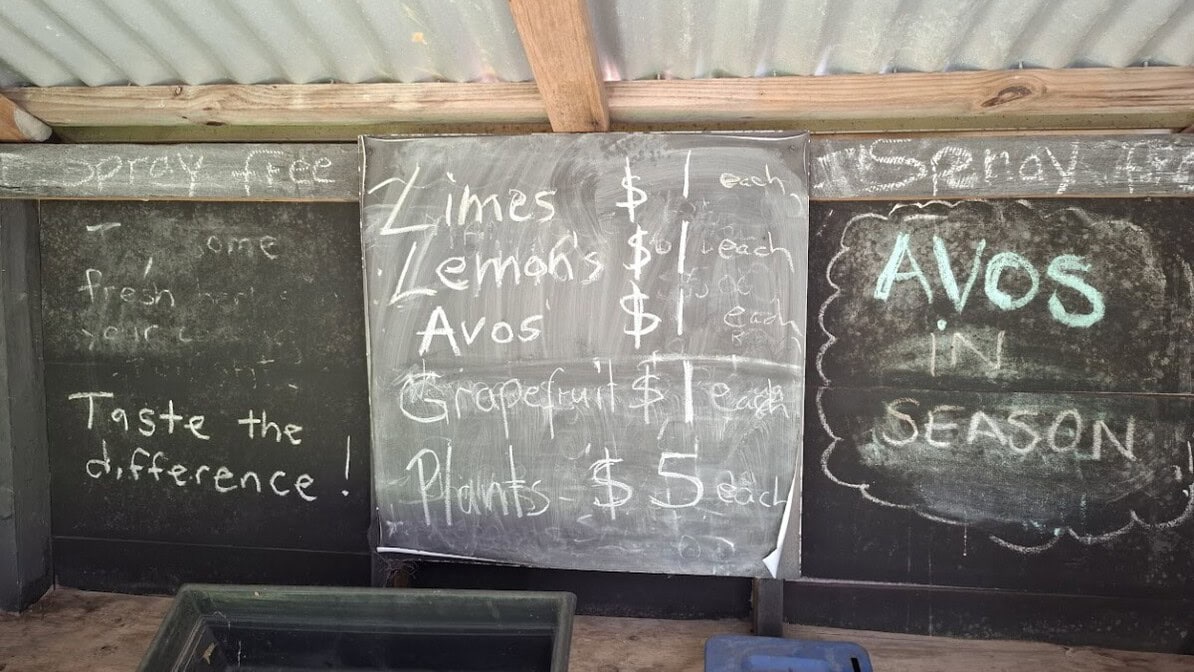 Spray free
ome
fresh
your
Taste the
difference!
Limes $1 each
Lemon's $1 each
Avos $1 each
Grapefruit $1 each
Plants - $5 each
Spray
AVOS
iN
SEASON